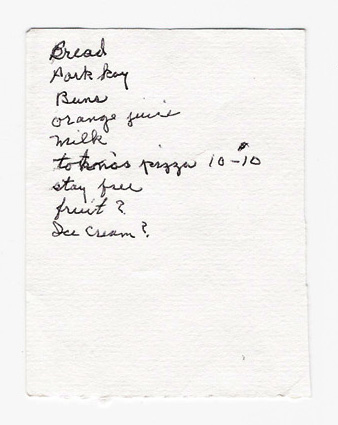 Bread
Park kay
Buns
orange juice
milk
totono's pizza 10-10
stay free
fruit ?
Ice Cream ?